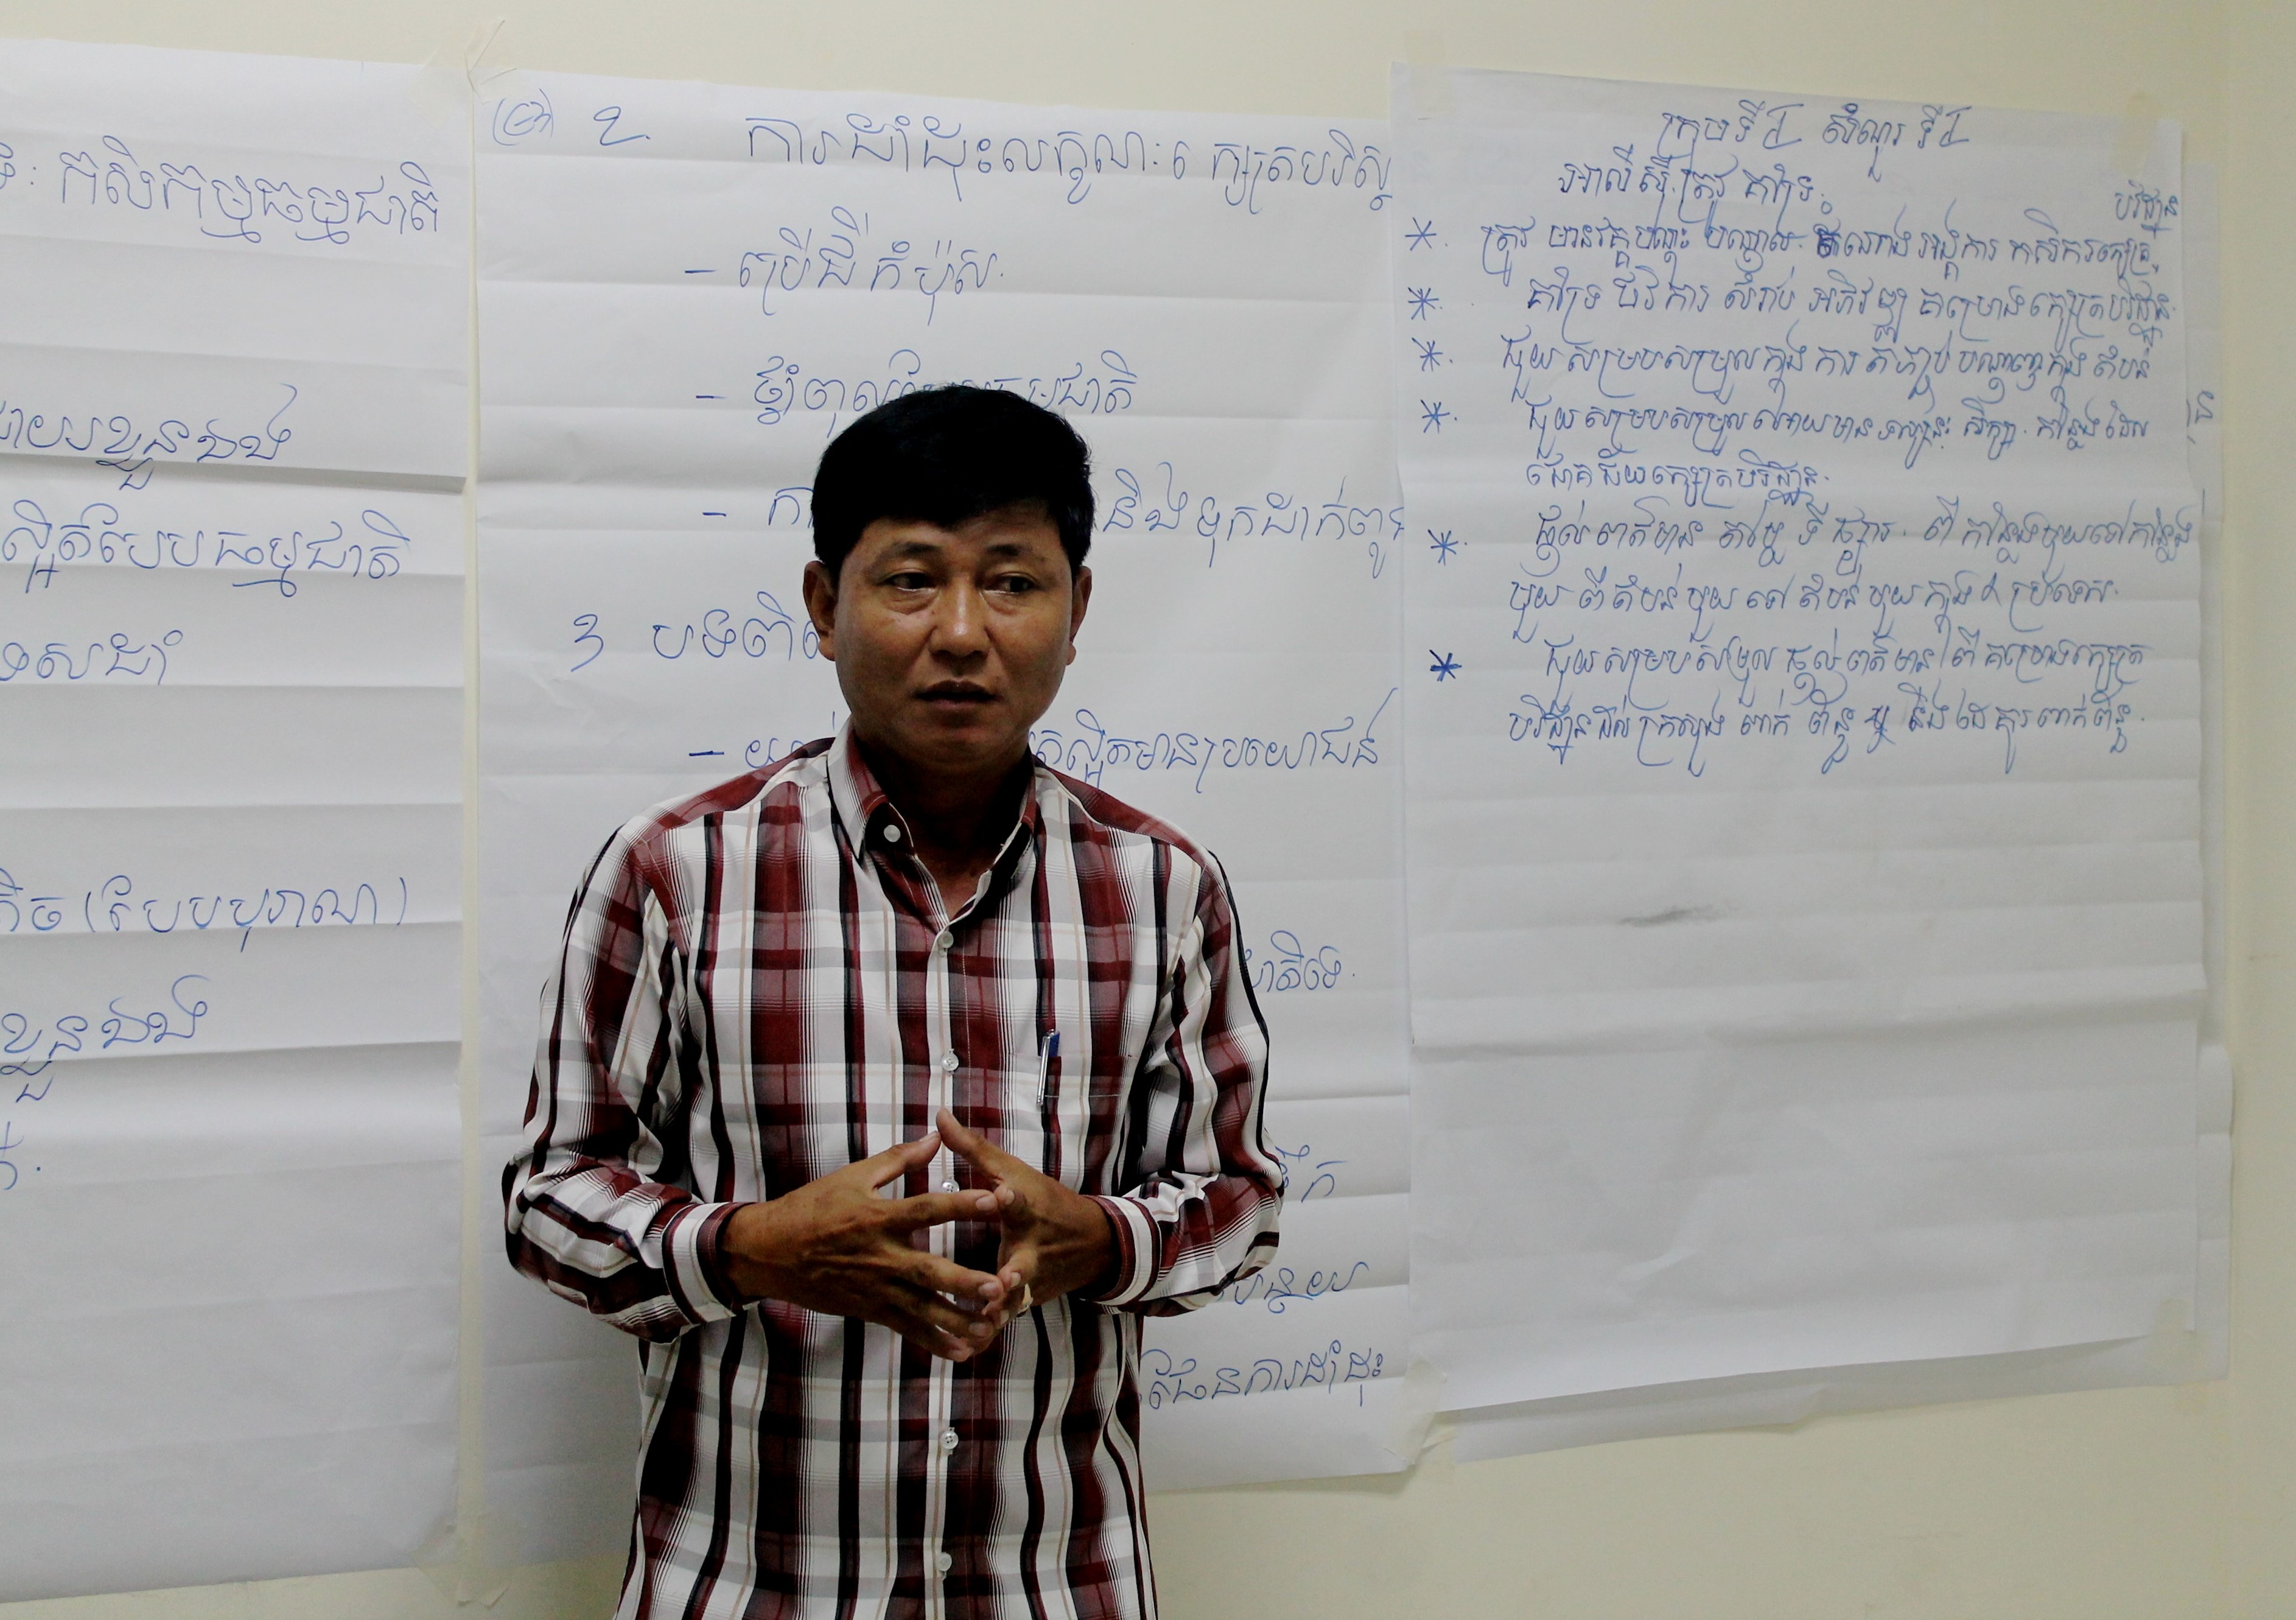 កសិកម្មធម្មជាតិ
ខ្លួនឯង
បែបធម្មជាតិ
(បែបបុរាណ)
ខ្លួនឯង
2. ការដាំដុះលក្ខណៈក្សេត្របរិស្ថ
- ប្រើជីកំប៉ុស
- ថ្នាំពុល ធម្មជាតិ
និងទុកដាក់ពូ
3 បទពិ
មានប្រយោជន៍
ជាតិទេ.
ទឹក
បន្ថយ
ផែនការដាំដុះ
ក្រុមទី1 សំណួរទី1
អាលីស៊ីត្រូវគាំទ្រ.
បរិដ្ឋាន
* ត្រូវមានវគ្គបណ្តុះបណ្តាល អង្គការកសិករក្សេត្រ
* គាំទ្រថវិការសំរាប់អភិវឌ្ឍគម្រោងក្សេត្របរិដ្ឋាន.
* ជួយសម្របសម្រួលក្នុងការតភ្ជាប់បណ្តាញក្នុងតំបន់
* ជួយសម្របសម្រួលអោយមានទស្សនៈសិក្សា.កន្លែងដែល
ជោគជ័យក្សេត្របរិដ្ឋាន.
* ផ្តល់ពត៌មានតម្លៃទីផ្សារ.ពីកន្លែងមួយទៅកន្លែង
មួយពីតំបន់មួយទៅតំបន់មួយក្នុងប្រទេស.
* ជួយសម្របសម្រួលផ្តល់ពត៌មានពីគម្រោងក្សេត្រ
បរិដ្ឋានដល់ក្រសួងពាក់ព័ន្ធ និងដៃគូរពាក់ព័ន្ធ.